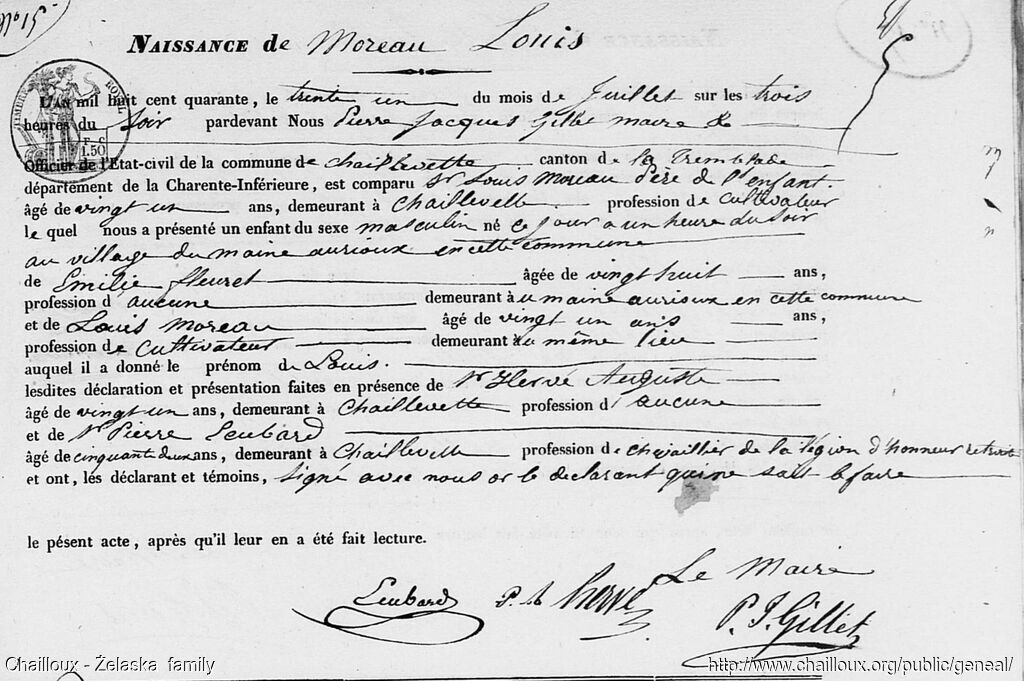 NAISSANCE de Moreau Louis
TIMBRE ROYAL
1.50
L'AN mil huit cent quarante, le trente un du mois de Juillet sur les trois
heures du soir pardevant Nous Pierre Jacques Gillet maire &
Officier de l'Etat-civil de la commune de Chaillevette canton de la Tremblade
département de la Charente-Inférieure, est comparu Sr Louis Moreau Père de l'enfant.
âgé de vingt un ans, demeurant à Chaillevette profession de cultivateur
le quel nous a présenté un enfant du sexe masculin né ce jour a un heure du soir
au village du maine aurioux en cette commune
de Emilie fleuret âgée de vingt huit ans,
profession d'aucune demeurant au maine aurioux en cette commune
et de Louis Moreau âgé de vingt un ans ans,
profession de cultivateur demeurant au même lieu
auquel il a donné le prénom de Louis.
lesdites déclaration et présentation faites en présence de Sr Hervé Auguste
âgé de vingt un ans, demeurant à Chaillevette profession d'aucune
et de Sr Pierre Leubard
âgé de cinquante deux ans, demeurant à Chaillevette profession de chevaillier de la légion d'honneur retraité
et ont, lés déclarant et témoins, signé avec nous or le declarant qui ne sait le faire
le pésent acte, après qu'il leur en a été fait lecture.
Le Maire
Leubard hervé P. J. Gillet
Chailloux - Želaska family http://www.chailloux.org/public/geneal/